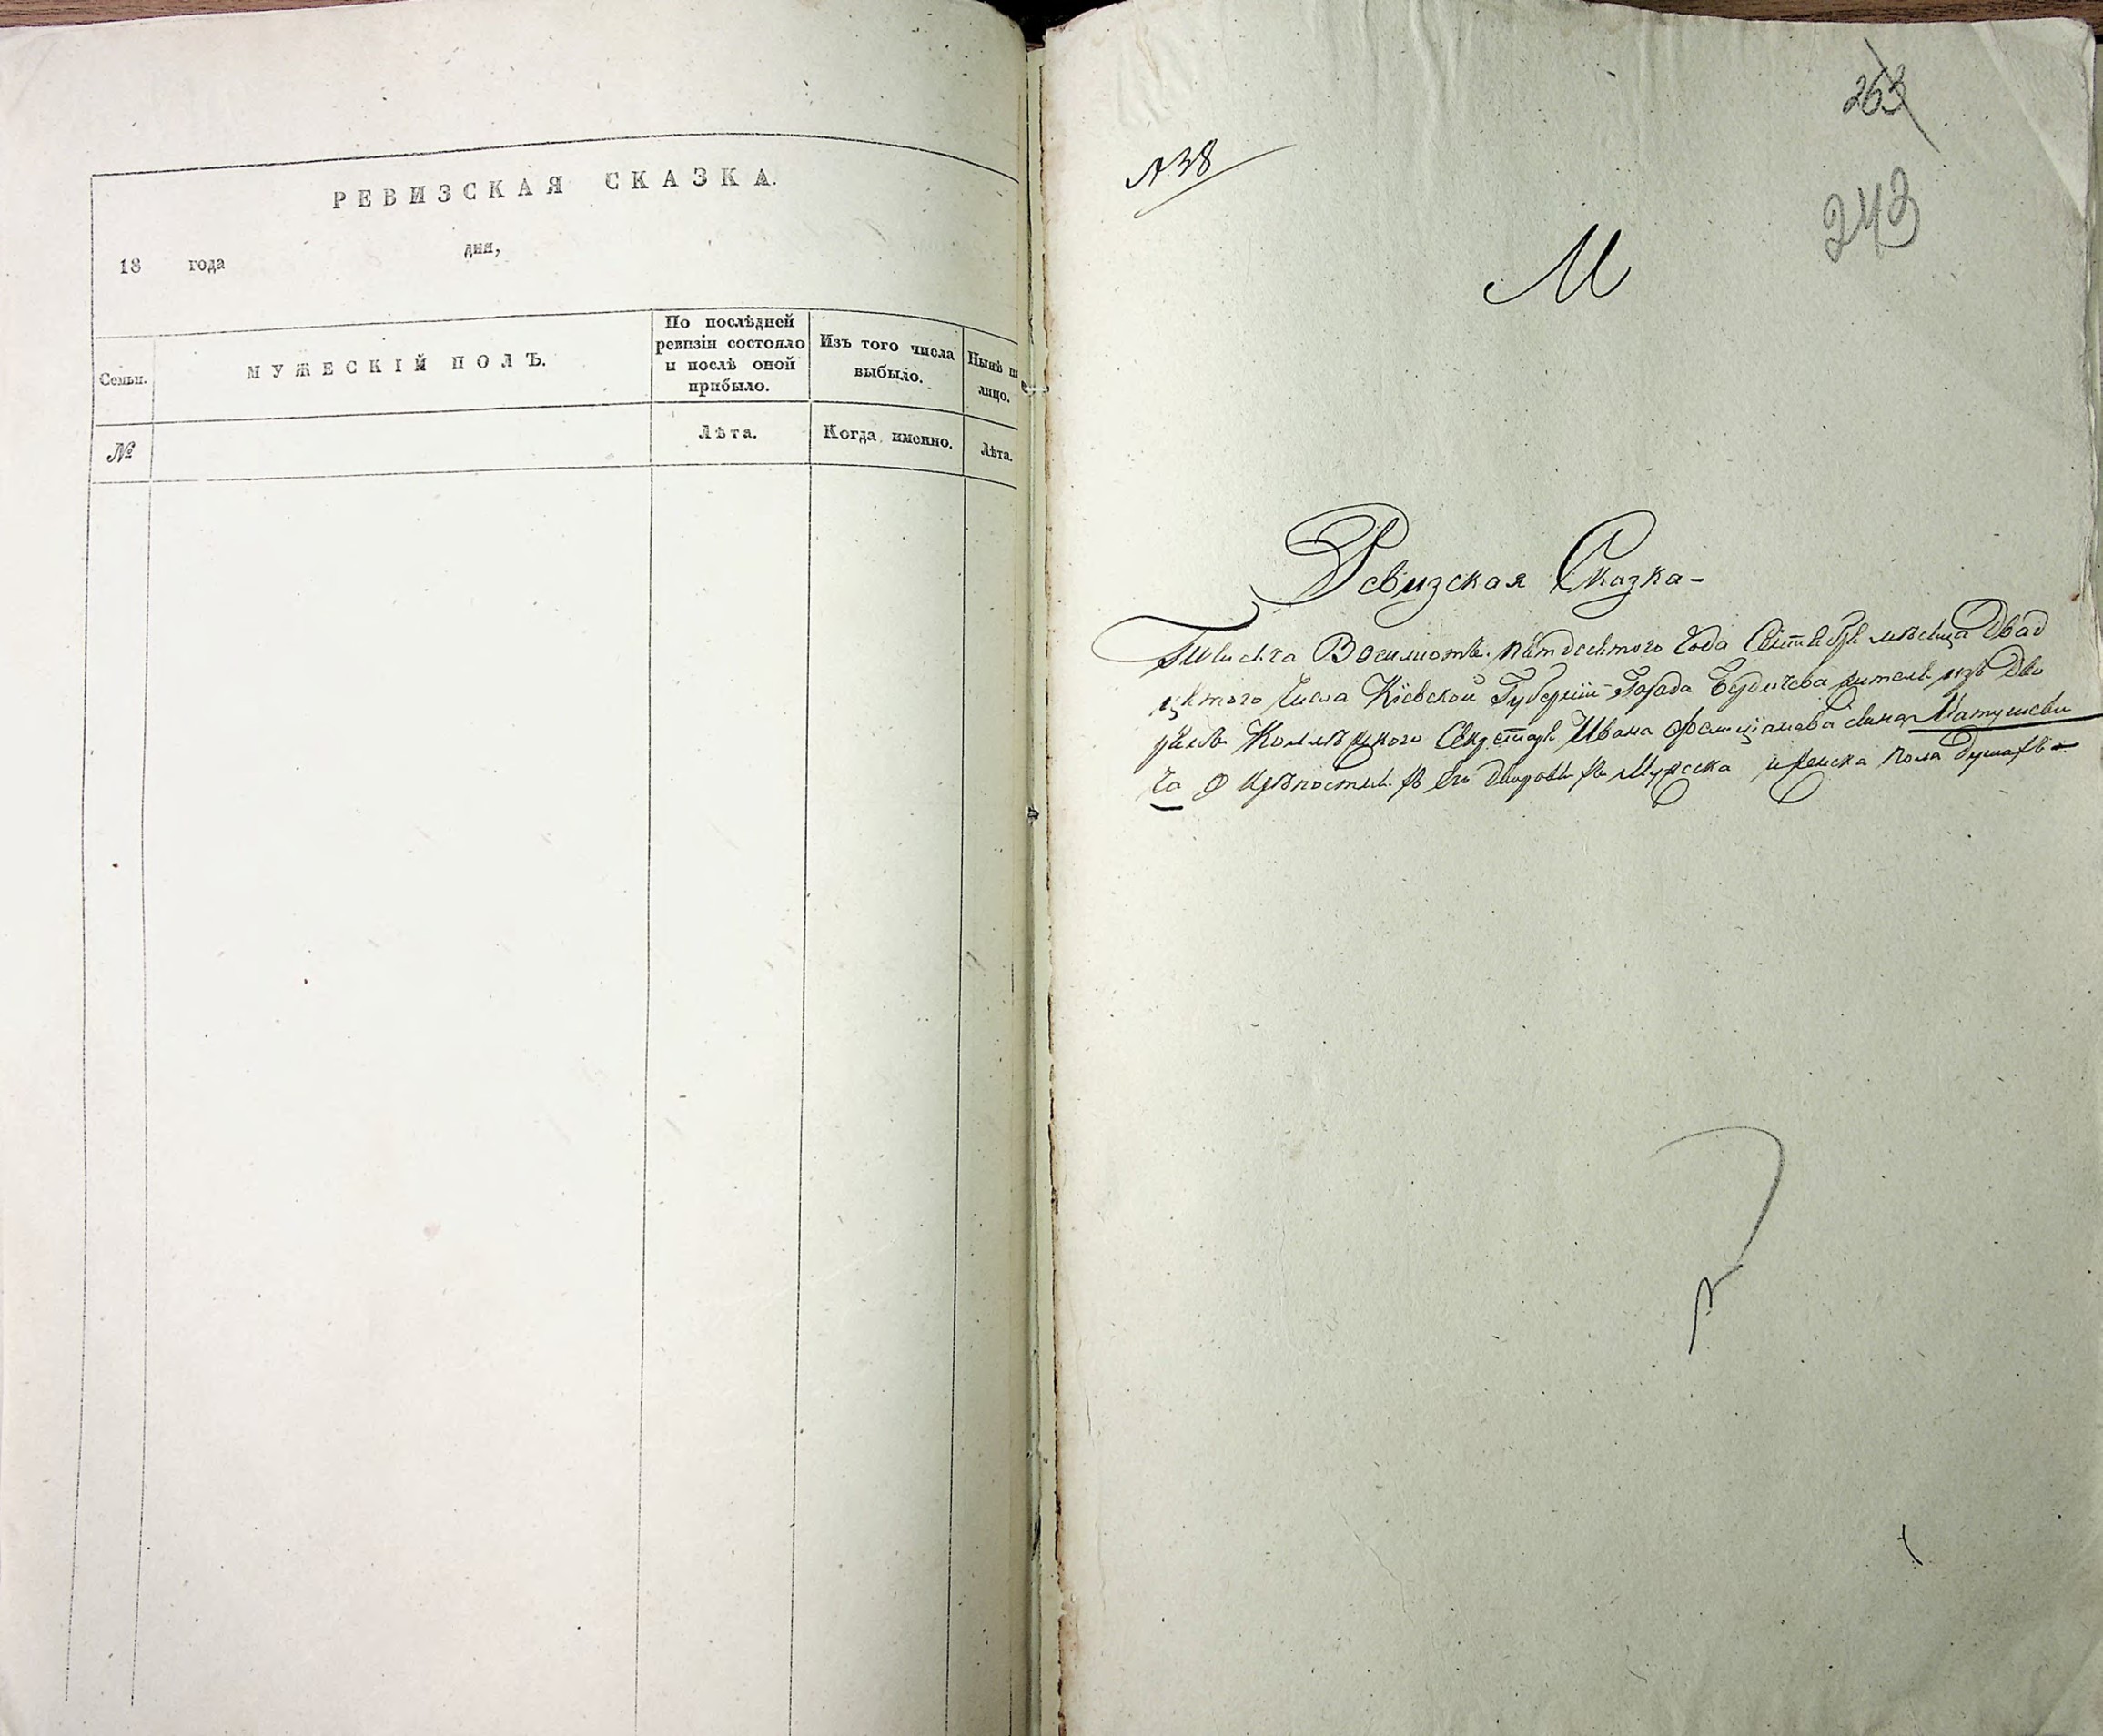 РЕВИЗСКАЯ СКАЗКА.
18 года дня,
Семьи.
МУЖЕСКІЙ ПОЛЪ.
По послѣдней
ревизіи состояло
и послѣ оной
прибыло.
Изъ того числа
выбыло.
Нынѣ на
лицо.
№
Лѣта.
Когда именно.
Лѣта.
263
243
№38
М
Ревизская Сказка-
Тисяча Восимсотъ пятдесятого Года Сентября месяца Двад
цятого Числа Кіевской Губерніи Города Бердичева жителя изъ Дво
рянъ Ивана сына Матушеви
ча О его Мужеска и женска пола душахъ